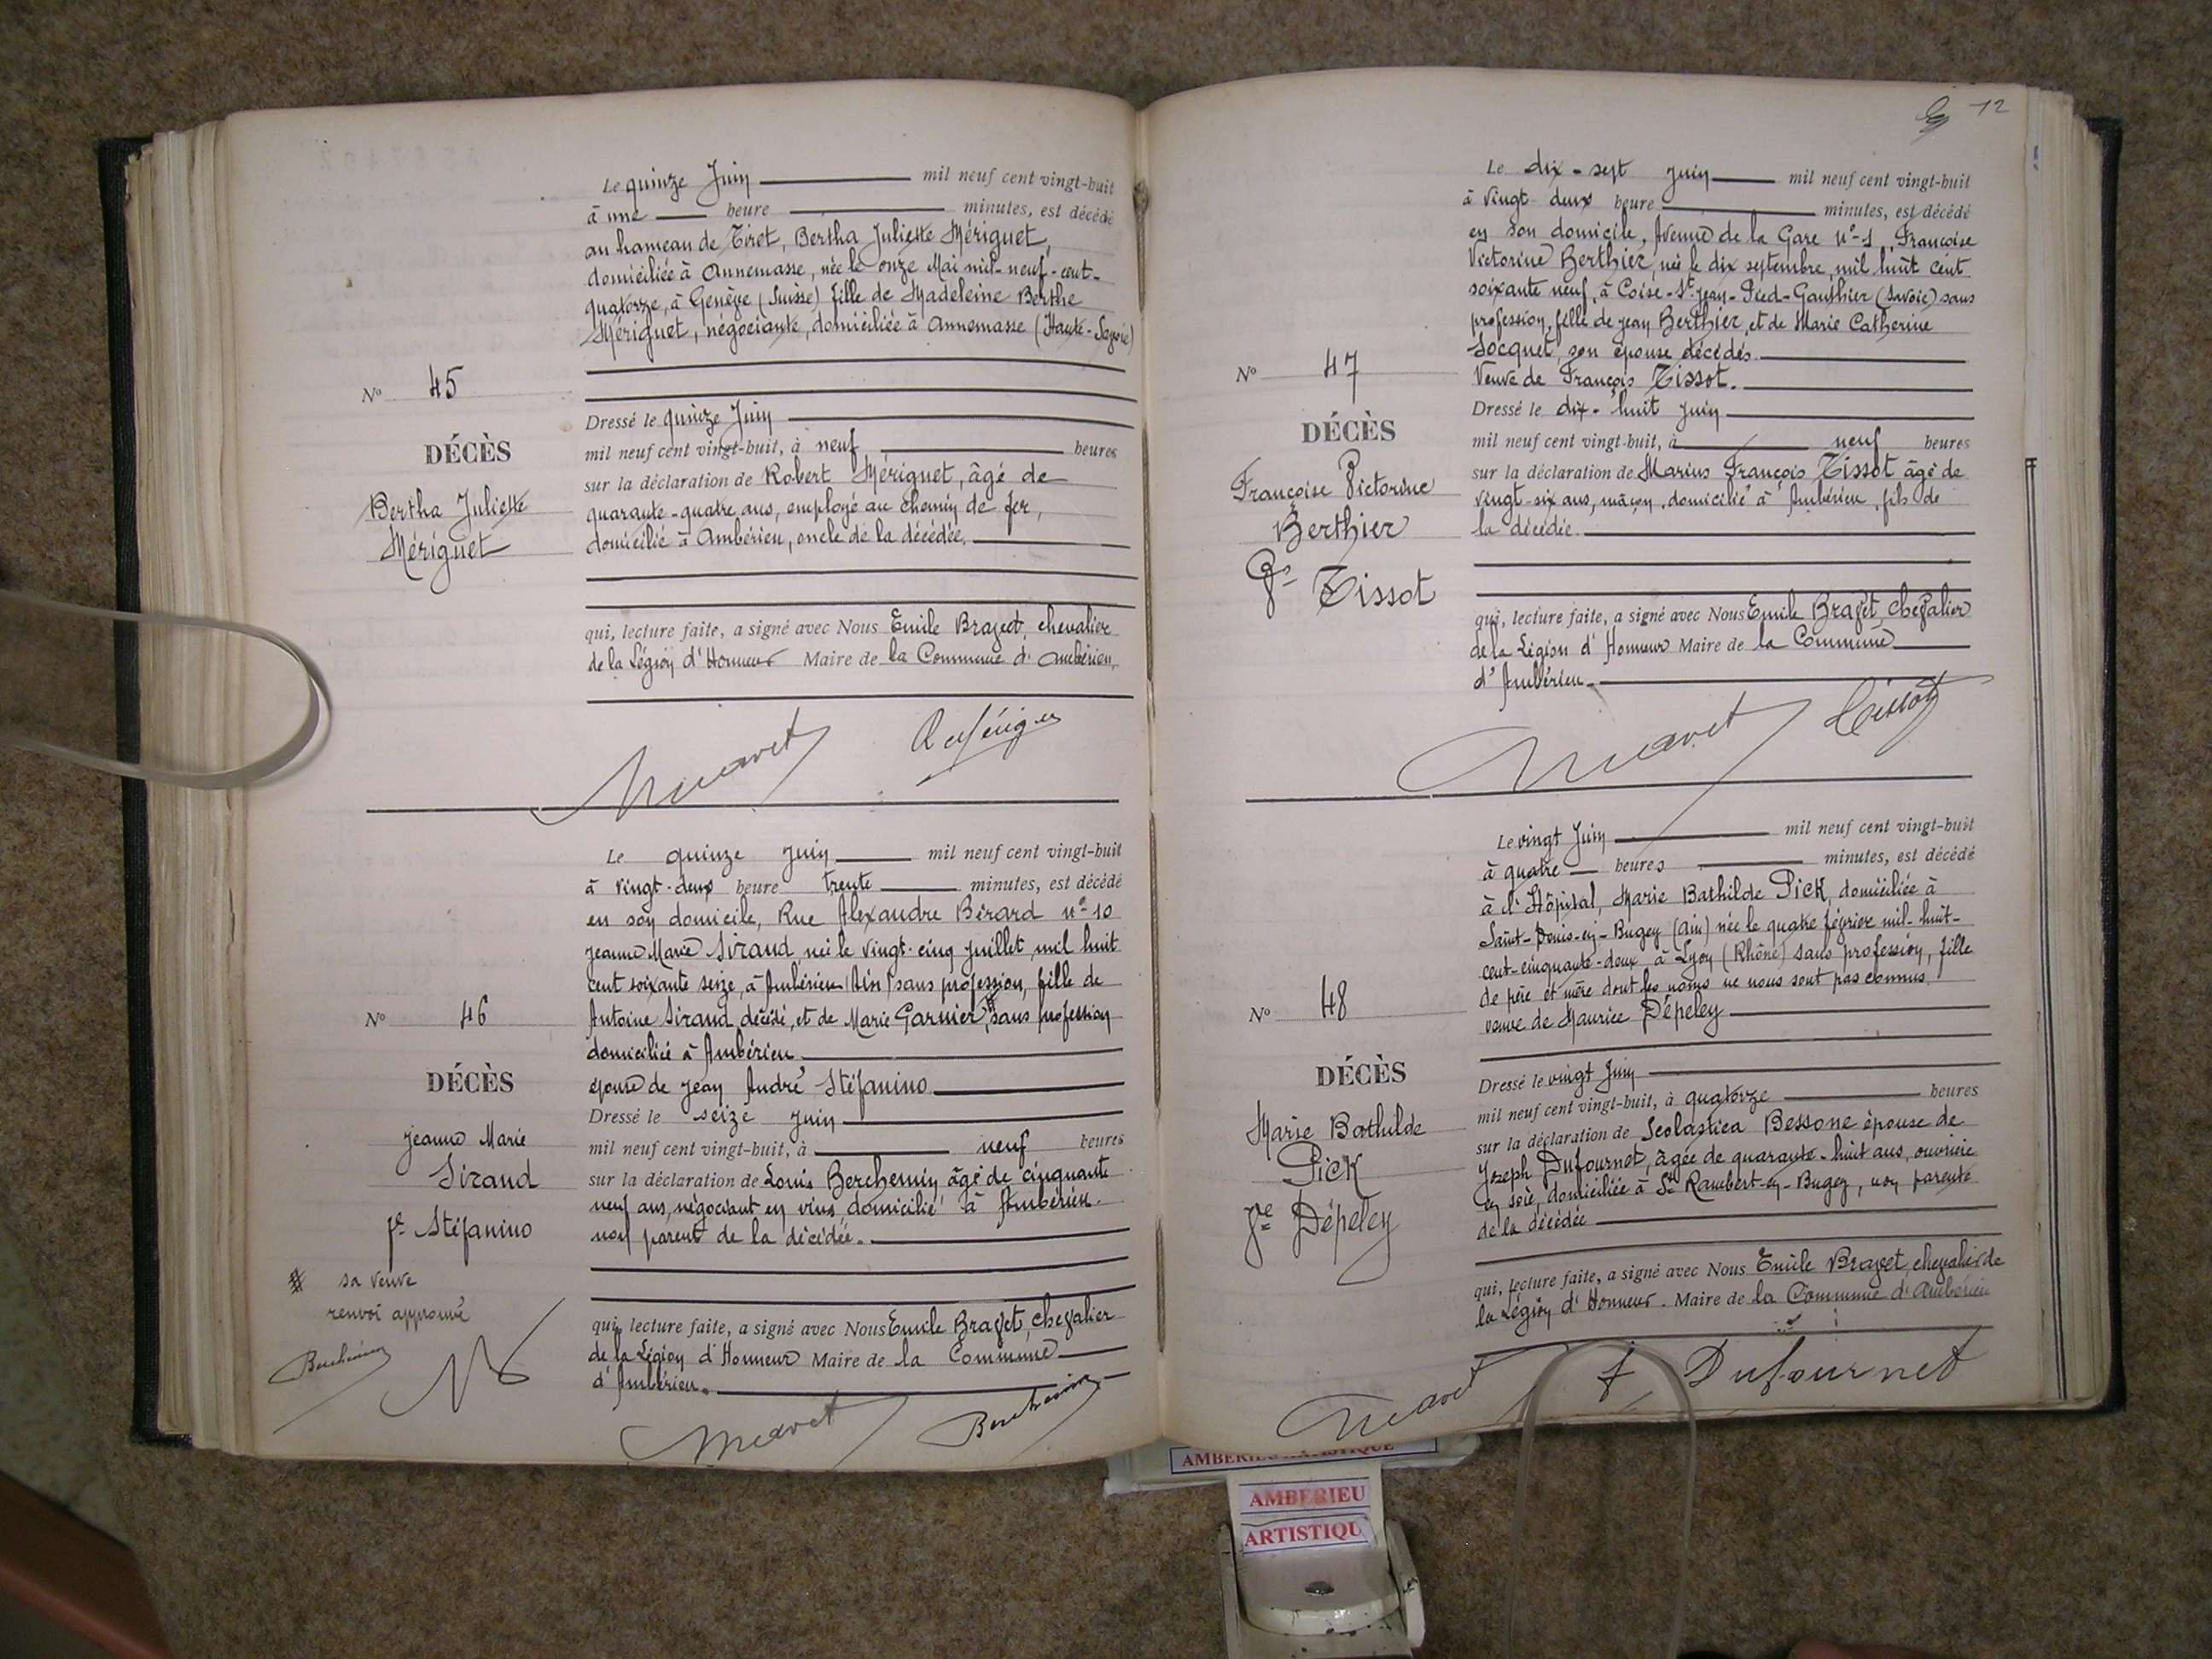 Le quinze Juin mil neuf cent vingt-huit
à une heure minutes, est décédé
au hameau de Tiret, Bertha Juliette Mériguet,
domiciliée à Annemasse, née le onze Mai mil-neuf-cent-
quatorze, à Genève (Suisse) fille de Madeleine Berthe
Mériguet, négociante, domiciliée à Annemasse (Haute-Savoie)
No 45
DÉCÈS
Bertha Juliette
Mériguet
Dressé le quinze Juin
mil neuf cent vingt-huit, à neuf heures
sur la déclaration de Robert Mériguet, âgé de
quarante-quatre ans, employé au chemin de fer,
domicilié à Ambérieu, oncle de la décédée.
qui, lecture faite, a signé avec Nous Emile Bravet, chevalier
de la Légion d'Honneur Maire de la Commune d'Ambérieu,
Le quinze juin mil neuf cent vingt-huit
à vingt-deux heure trente minutes, est décédé
en son domicile, Rue Alexandre Bérard n° 10
Jeanne Marie Siraud, née le vingt-cinq juillet mil huit
cent soixante seize, à Ambérieu (Ain) sans profession, fille de
Antoine Siraud, décédé, et de Marie Garnier, # sans profession
domiciliée à Ambérieu
épouse de Jean André Stéfanino
No 46
DÉCÈS
Jeanne Marie
Siraud
fe Stéfanino
# sa veuve
renvoi approuvé
Berchemin
Dressé le seize juin
mil neuf cent vingt-huit, à neuf heures
sur la déclaration de Louis Berchemin âgé de cinquante
neuf ans, négociant en vins, domicilié à Ambérieu.
non parent de la décédée.
qui, lecture faite, a signé avec Nous Emile Bravet, chevalier
de la Légion d'Honneur Maire de la Commune
d'Ambérieu.
Berchemin
12
Le dix-sept juin mil neuf cent vingt-huit
à vingt deux heure minutes, est décédé
en son domicile, Avenue de la Gare n°-1, Françoise
Victorine Berthier, née le dix septembre, mil huit cent
soixante neuf, à Coise-St-Jean-Pied-Gauthier (Savoie) sans
profession, fille de Jean Berthier, et de Marie Catherine
Socquet, son épouse décédés.
Veuve de François Tissot.
No 47
DÉCÈS
Françoise Victorine
Berthier
Ve Tissot
Dressé le dix-huit juin
mil neuf cent vingt-huit, à neuf heures
sur la déclaration de Marius François Tissot âgé de
vingt-six ans, maçon, domicilié à Ambérieu, fils de
la décédée.
qui, lecture faite, a signé avec Nous Emile Bravet, chevalier
de la Légion d'Honneur Maire de la Commune
d'Ambérieu.
Tissot
Le vingt Juin mil neuf cent vingt-huit
à quatre heures minutes, est décédé
à l'Hôpital, Marie Bathilde Pick, domiciliée à
Saint-Denis-en-Bugey (Ain) née le quatre février mil-huit-
cent-cinquante-deux à Lyon (Rhône) sans profession, fille
de père et mère dont les noms ne nous sont pas connus,
veuve de Maurice Dépeley
No 48
DÉCÈS
Marie Bathilde
Pick
Ve Dépeley
Dressé le vingt Juin
mil neuf cent vingt-huit, à quatorze heures
sur la déclaration de Scolastica Bessone épouse de
Joseph Dufournet, âgée de quarante-huit ans, ouvrière
en soie, domiciliée à St Rambert-en-Bugey, non parente
de la décédée
qui, lecture faite, a signé avec Nous Emile Bravet, chevalier de
la Légion d'Honneur. Maire de la Commune d'Ambérieu
Dufournet
AMBERIEU ARTISTIQUE
AMBERIEU
ARTISTIQU